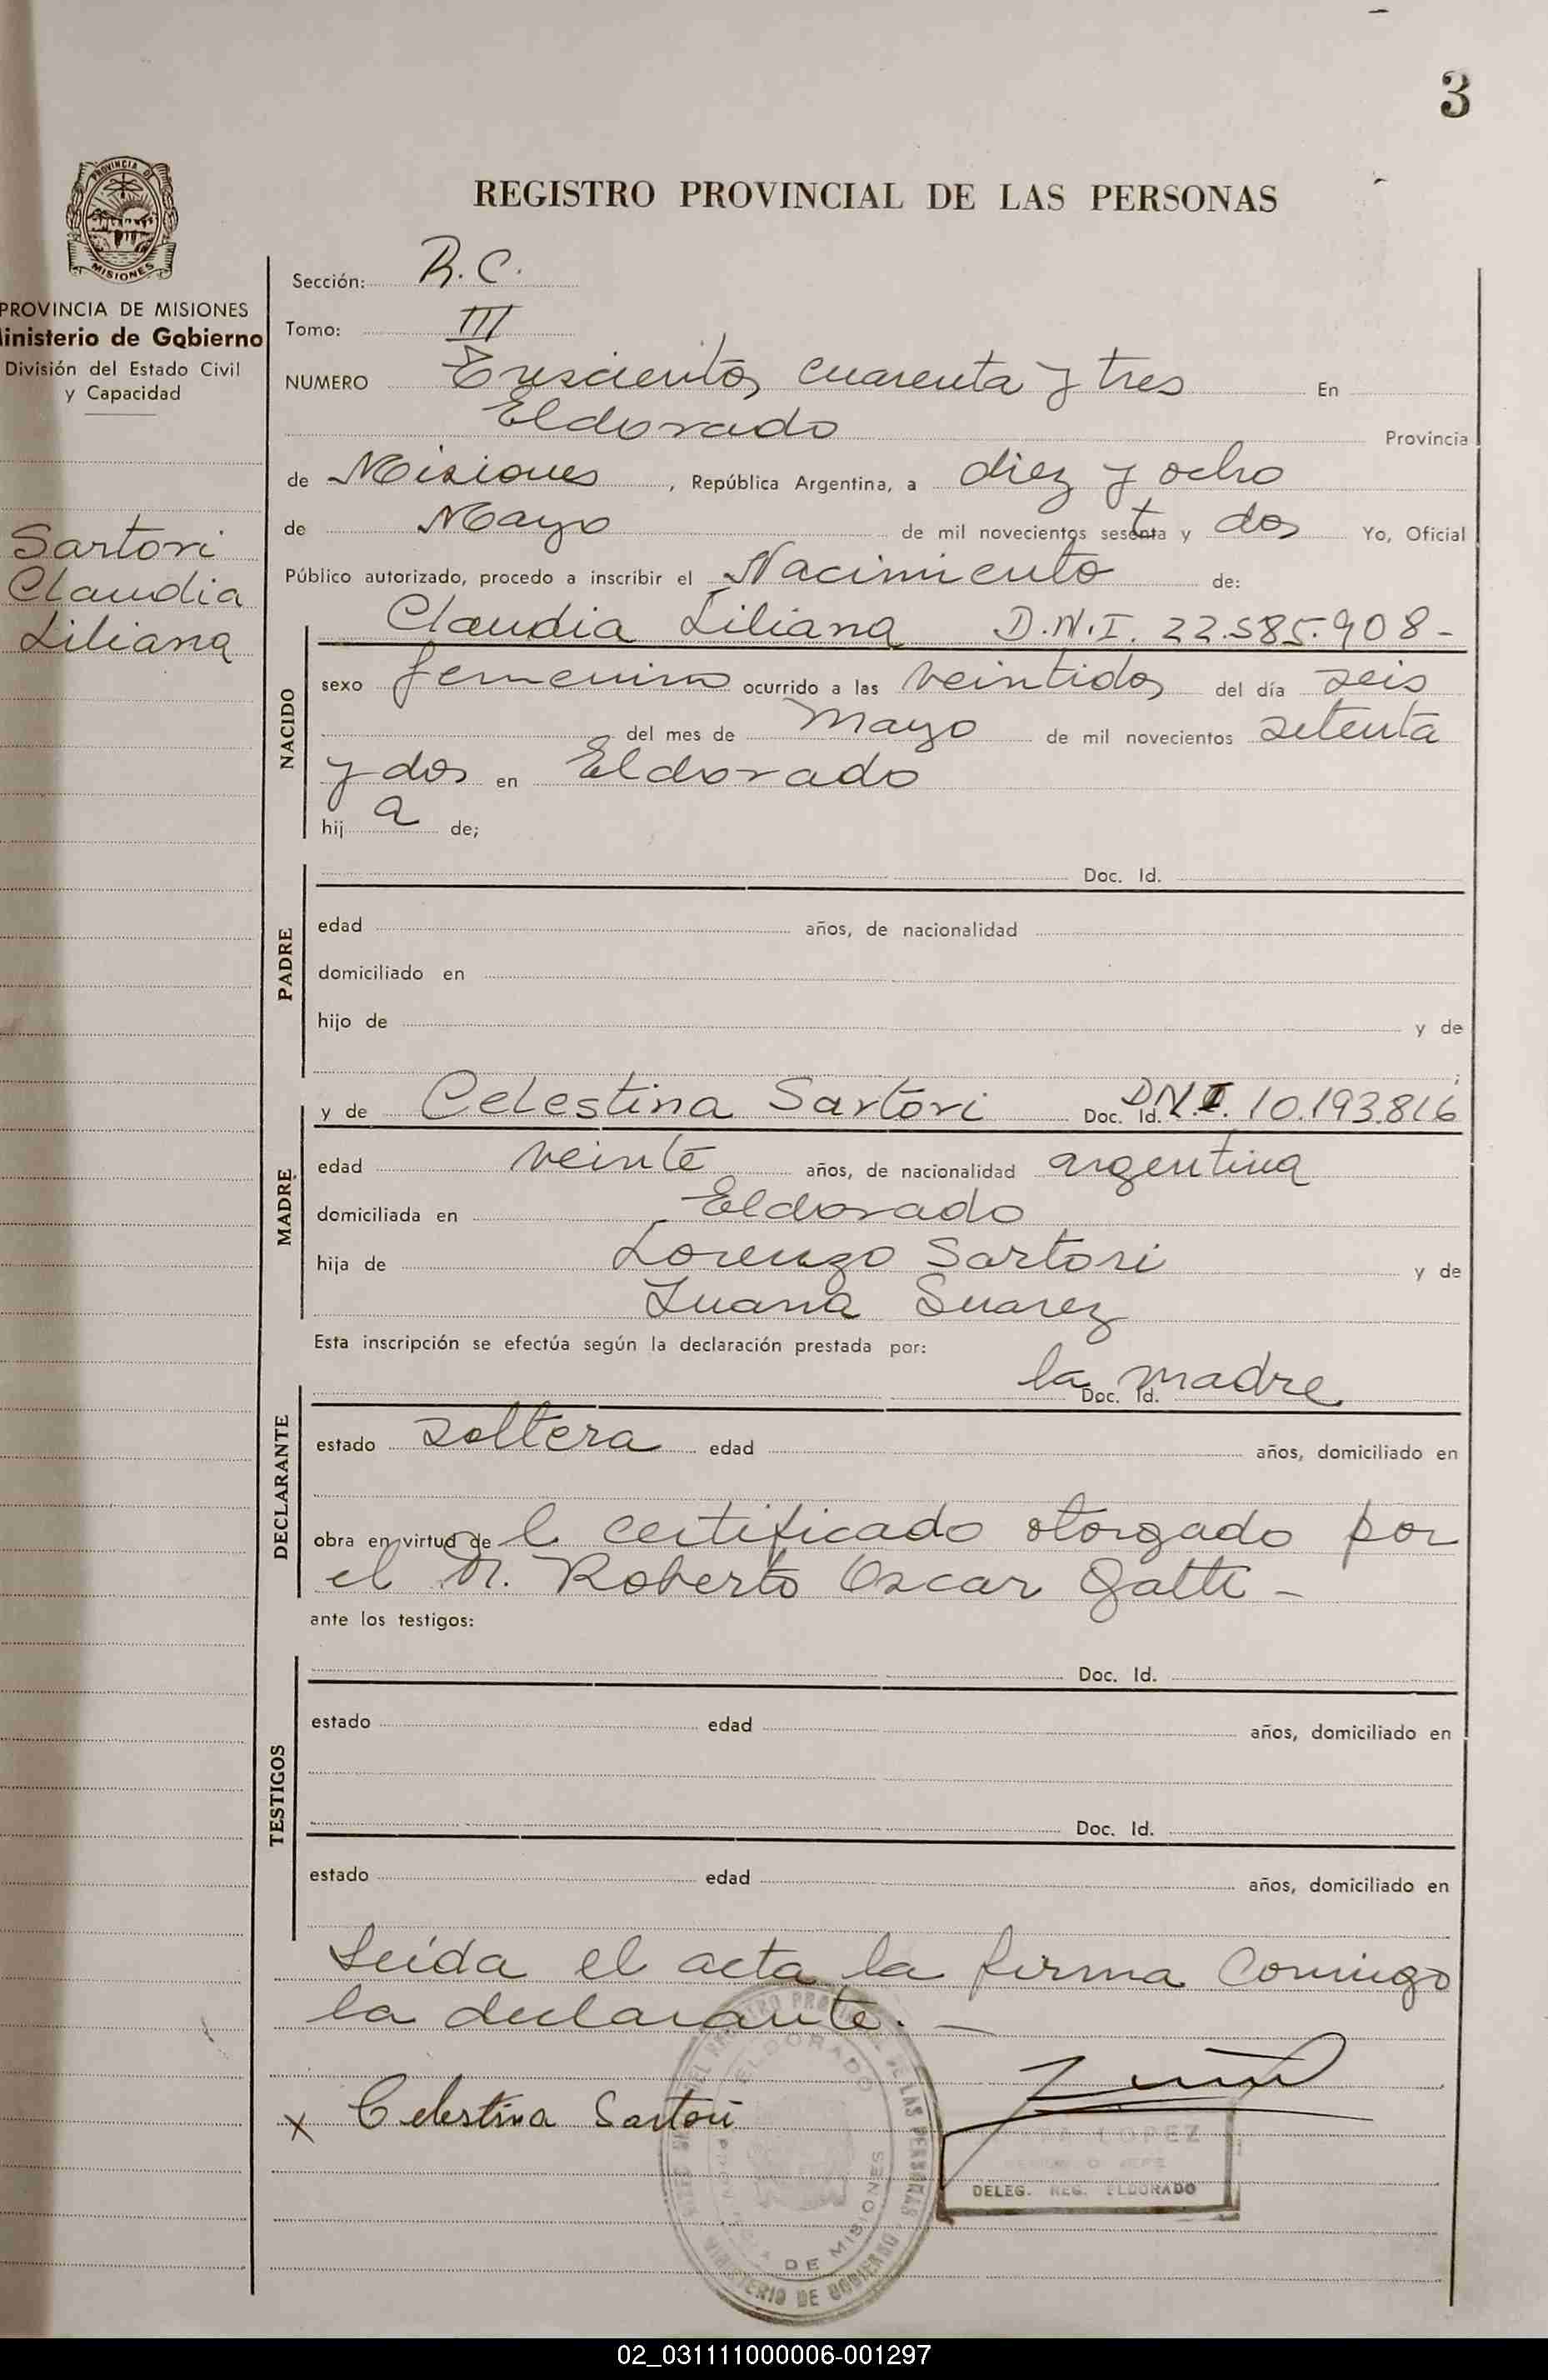 3
PROVINCIA DE
MISIONES
REGISTRO PROVINCIAL DE LAS PERSONAS
PROVINCIA DE MISIONES
Ministerio de Gobierno
División del Estado Civil
y Capacidad
Sartori
Claudia
Liliana
Sección: R.C.
Tomo: III
NUMERO Trescientos cuarenta y tres En
Eldorado Provincia
de Misiones, República Argentina, a diez y ocho
de Mayo de mil novecientos setenta y dos Yo, Oficial
Público autorizado, procedo a inscribir el Nacimiento de:
NACIDO
Claudia Liliana D.N.I. 22.585.908-
sexo femenino ocurrido a las veintidos del día seis
del mes de Mayo de mil novecientos setenta
y dos en Eldorado
hij a de;
PADRE
Doc. Id.
edad años, de nacionalidad
domiciliado en
hijo de y de
;
MADRE
y de Celestina Sartori Doc. Id. D.N.I. 10.193.816
edad veinte años, de nacionalidad argentina
domiciliada en Eldorado
hija de Lorenzo Sartori y de
Juana Suarez
Esta inscripción se efectúa según la declaración prestada por:
DECLARANTE
la madre Doc. Id.
estado soltera edad años, domiciliado en
obra en virtud de l certificado otorgado por
el Dr. Roberto Oscar Gatti -
ante los testigos:
TESTIGOS
Doc. Id.
estado edad años, domiciliado en
Doc. Id.
estado edad años, domiciliado en
Leída el acta la firma conmigo
la declarante. -
x Celestina Sartori
ELDORADO
DE MISIONES
MINISTERIO DE GOBIERNO
LOPEZ
DELEG. REG. ELDORADO
02_031111000006-001297